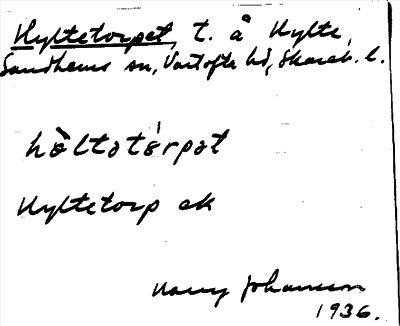 Hyltetorpet, t. å Hylte,
Sandhems sn, Vartofta hd, Skarab. l.
hàltatórpat
Hyltetorp ek
Harry Johansson
1936.